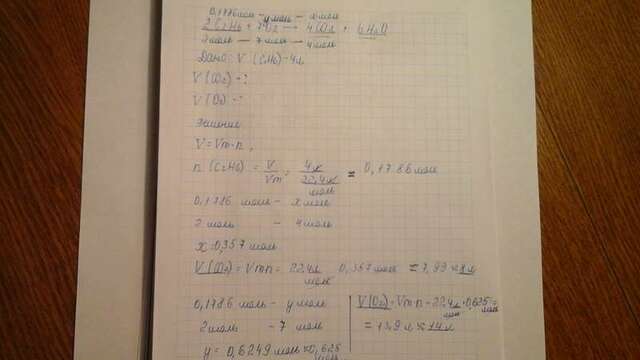 0,1786 моль — y моль — x моль
2C2H6 + 7O2 → 4CO2 + 6H2O
2 моль — 7 моль — 4 моль
Дано: V (C2H6) = 4л
V (CO2) - ?
V (O2) - ?
Решение
V = Vm · n,
n (C2H6) = V/Vm = 4 л / 22,4 л/моль = 0,1786 моль
0,1786 моль - x моль
2 моль - 4 моль
x = 0,357 моль
V(CO2) = Vm·n = 22,4 л/моль · 0,357 моль = 7,99 ≈ 8 л
0,1786 моль - y моль
2 моль - 7 моль
y = 0,6249 моль ≈ 0,625
V(O2) = Vm·n = 22,4 л/моль · 0,625 моль =
= 13,9 л ≈ 14 л